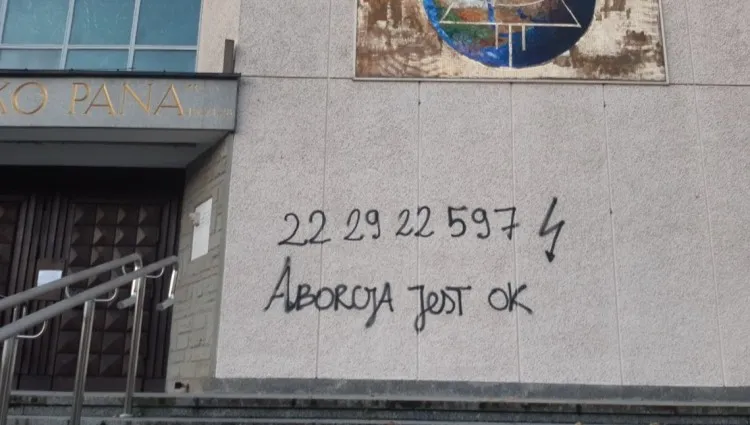 KO PANA
22 29 22 597
ABORCJA JEST OK